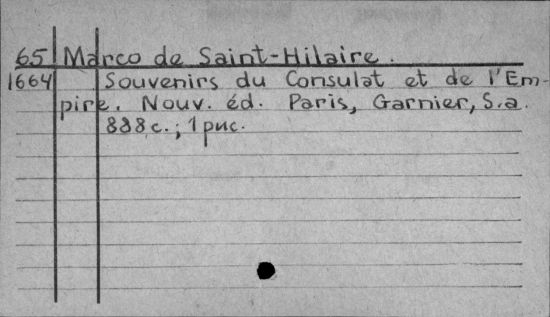 65 Marco de Saint-Hilaire.
1664 Souvenirs du Consulat et de l'Em-
pire. Nouv. éd. Paris, Garnier, S.a.
888 c.; 1 рис.